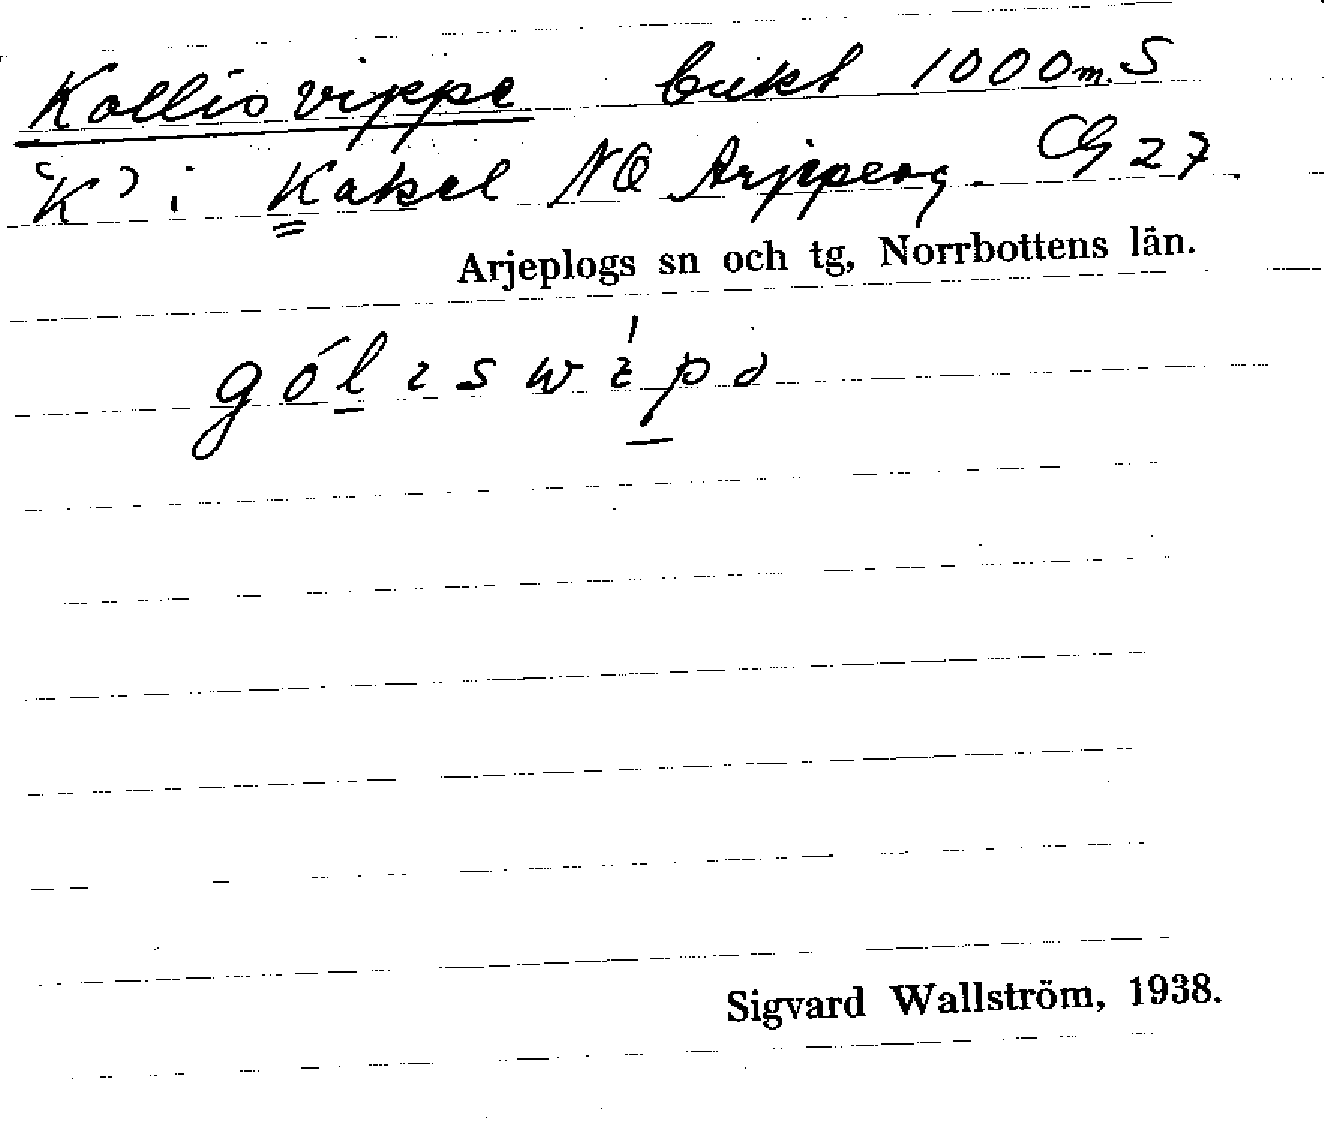 Kallisvippe bukt 1000 m. S
"K" i Kakel NO Arjepperg. CG 27.
Arjeplogs sn och tg, Norrbottens län.
góliswipə
Sigvard Wallström, 1938.